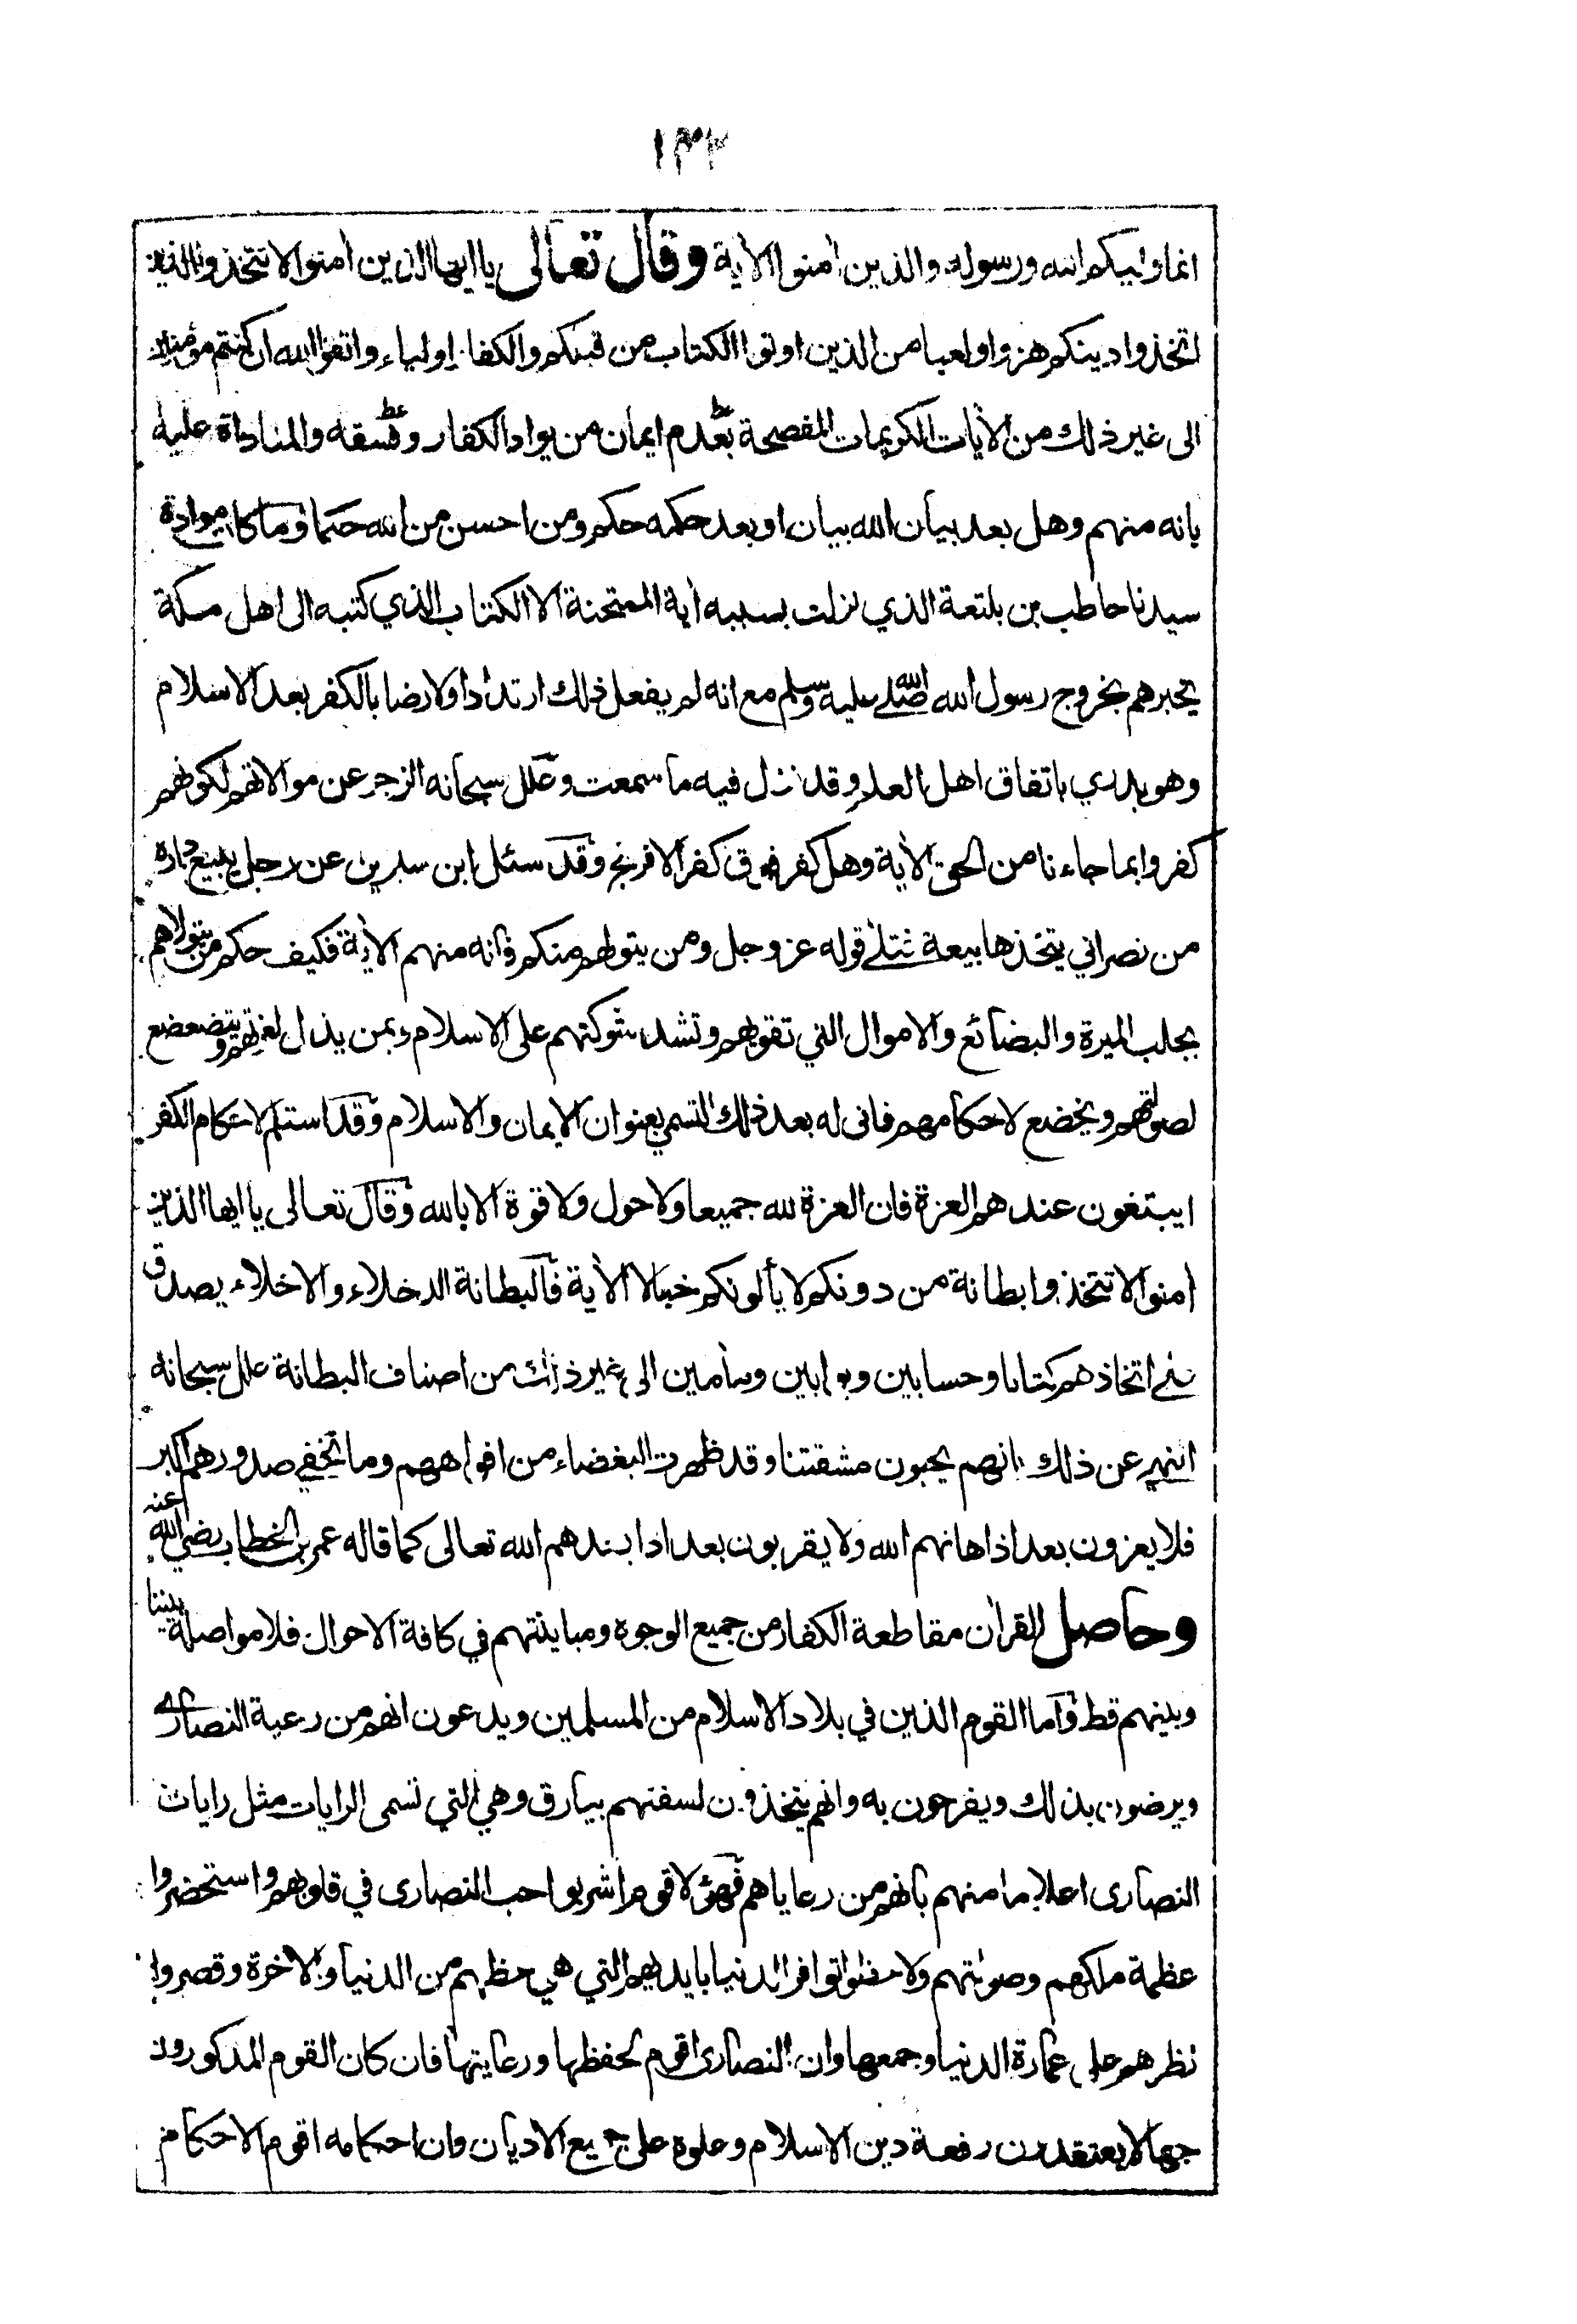 ١٣٢
انما وليكم الله ورسوله والذين اٰمنوا الاٰية وقال تعالى يا ايها الذين اٰمنوا لا تتخذوا الذين
اتخذوا دينكم هزوا ولعبا من الذين اوتوا الكتاب من قبلكم والكفار اولياء واتقوا الله ان كنتم مؤمنين
الى غير ذلك من الاٰيات الكريمات المفصحة بعدم ايمان من يواد الكفار وفسقه والمناداة عليه
بانه منهم وهل بعد بيان الله بيان او بعد حكمه حكم ومن احسن من الله حكما وما كان موادة
سيدنا حاطب بن بلتعة الذي نزلت بسببه اٰية الممتحنة الا الكتاب الذي كتبه الى اهل مكة
يخبرهم بخروج رسول الله صلى الله عليه وسلم مع انه لم يفعل ذلك ارتدادا ولا رضا بالكفر بعد الاسلام
وهو بدري باتفاق اهل العلم وقد نزل فيه ما سمعت وعلل سبحانه الزجر عن موالاتهم لكونهم
كفروا بما جاءنا من الحق الاٰية وهل كفر فوق كفر الافرنج وقد سئل ابن سيرين عن رجل يبيع داره
من نصراني يتخذها بيعة فتلى قوله عز وجل ومن يتولهم منكم فانه منهم الاٰية فكيف حكم من يتولاهم
بجلب الميرة والبضائع والاموال التي تقويهم وتشد شوكتهم على الاسلام وبمن يذل لعزتهم ويتضعضع
لصولتهم ويخضع لاحكامهم فانى له بعد ذلك التسمي بعنوان الايمان والاسلام وقد استلم لاحكام الكفر
ايبتغون عندهم العزة فان العزة لله جميعا ولا حول ولا قوة الا بالله وقال تعالى يا ايها الذين
اٰمنوا لا تتخذوا بطانة من دونكم لا يألونكم خبالا الاٰية فالبطانة الدخلاء والاخلاء يصدق
في اتخاذهم كتابا وحسابين وبوابين الى غير ذلك من اصناف البطانة علل سبحانه
النهي عن ذلك بانهم يحبون مشقتنا وقد ظهرت البغضاء من افواههم وما تخفي صدورهم اكبر
فلا يعزون بعد اذ اهانهم الله ولا يقربون بعد اذا الله تعالى كما قاله عمر بن الخطاب رضي الله عنه
وحاصل القراٰن مقاطعة الكفار من جميع الوجوه ومباينتهم في كافة الاحوال فلا مواصلة بيننا
وبينهم قط واما القوم الذين في بلاد الاسلام من المسلمين ويدعون انهم من رعية النصارى
ويرضون بذلك ويفرحون به وانهم يتخذون لسفنهم بيارق وهي التي تسمى الرايات مثل رايات
النصارى اعلاما منهم بانهم من رعاياهم فهؤلاء قوم اشربوا حب النصارى في قلوبهم واستحضروا
عظمة ملكهم وصولتهم ولاحظوا توافر الدنيا بايديهم التي هي حظهم من الدنيا والاخرة وقصروا
نظرهم على عمارة الدنيا وجمعها وان النصارى اقوم لحفظها ورعايتها فان كان القوم المذكورون
جهالا يعتقدون رفعة دين الاسلام وعلوه على جميع الاديان وان احكامه اقوم الاحكام